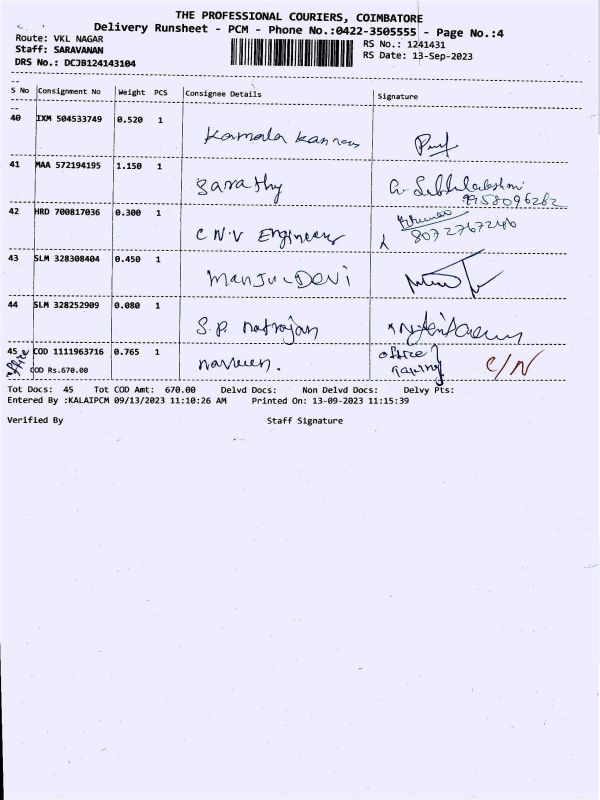 THE PROFESSIONAL COURIERS, COIMBATORE
Delivery Runsheet - PCM - Phone No.:0422-3505555 - Page No.:4
Route: VKL NAGAR
RS No.: 1241431
Staff: SARAVANAN
RS Date: 13-Sep-2023
DRS No.: DCJB124143104
S No Consignment No Weight PCS Consignee Details Signature
40 IXM 504533749 0.520 1 Kamala Kannan
41 MAA 572194195 1.150 1 Sarathy G. Subbulakshmi
9958096282
42 HRD 700817036 0.300 1 C N.V Engineers 8072767246
43 SLM 328308404 0.450 1 Manju Devi
44 SLM 328252909 0.080 1 S.P. Natrajan
45 COD 1111963716 0.765 1 naveen. office C/N
office COD Rs.670.00
Tot Docs: 45 Tot COD Amt: 670.00 Delvd Docs: Non Delvd Docs: Delvy Pts:
Entered By :KALAIPCM 09/13/2023 11:10:26 AM Printed On: 13-09-2023 11:15:39
Verified By Staff Signature